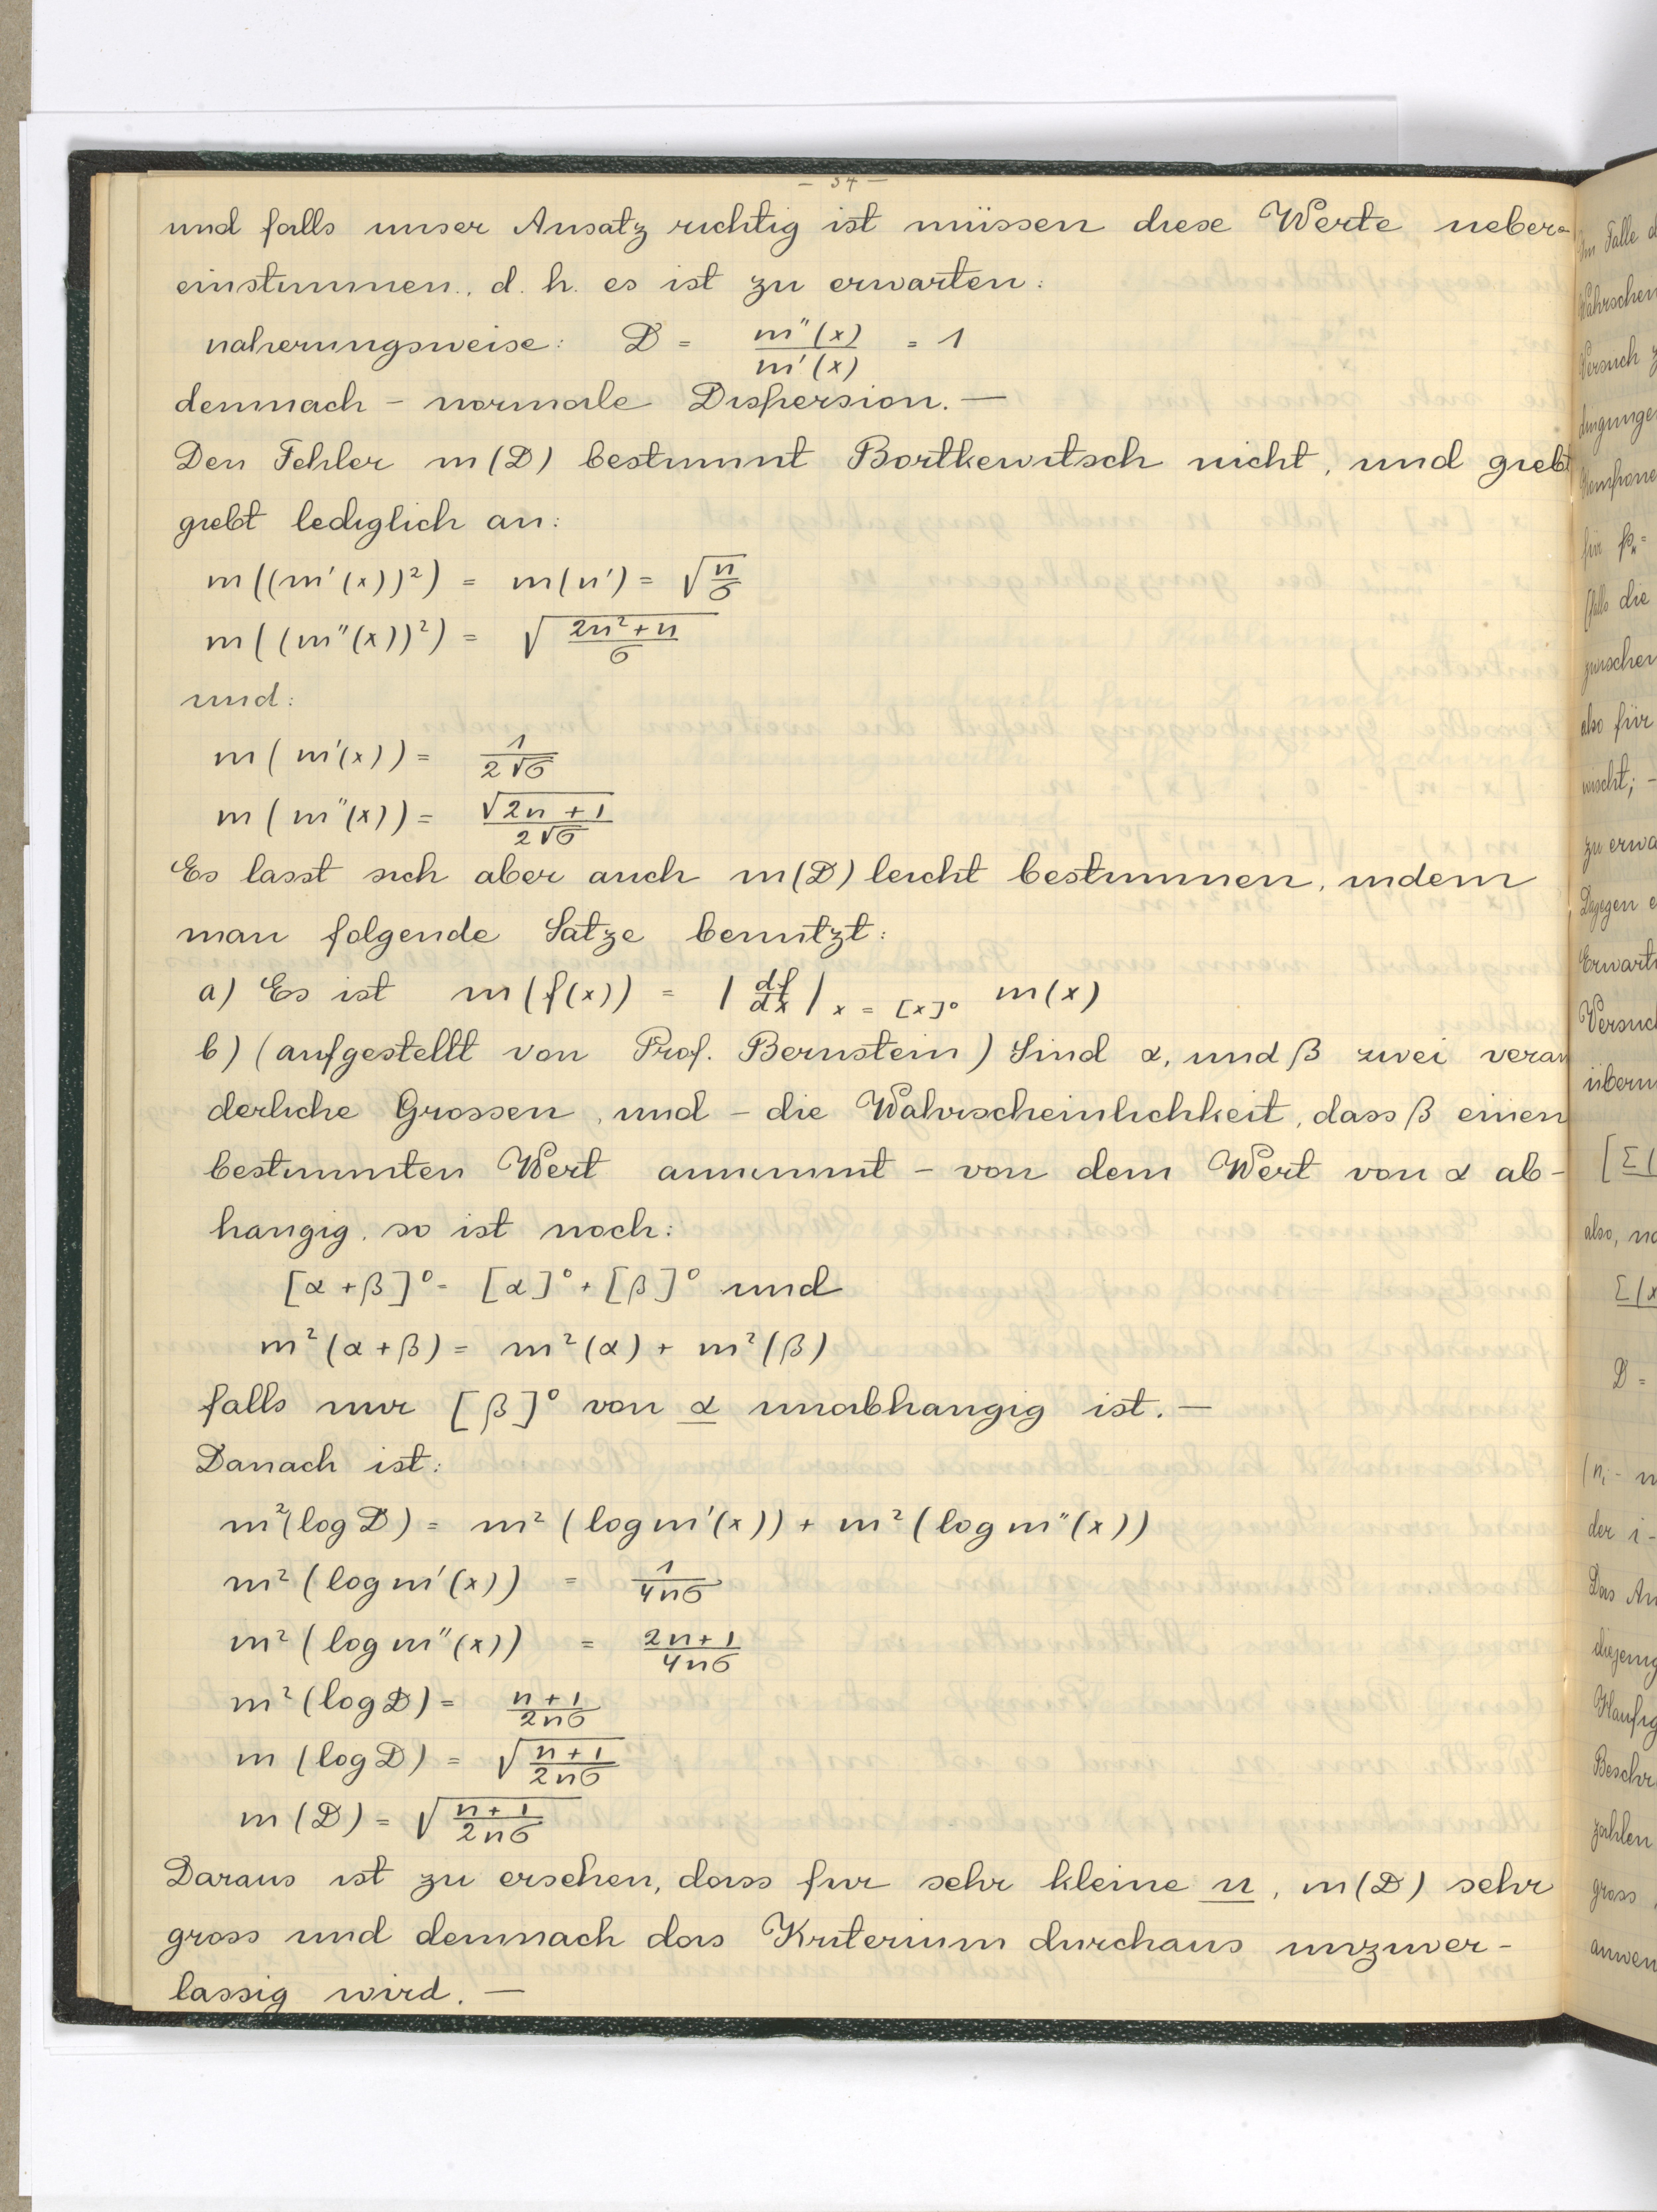 — 54 —
und falls unser Ansatz richtig ist müssen diese Werte ueber-
einstimmen, d. h. es ist zu erwarten:
naherungsweise: D = m''(x) / m'(x) = 1
demnach – normale Dispersion. —
Den Fehler m(D) bestimmt Bortkewitsch nicht, und giebt
giebt lediglich an:
m((m'(x))²) = m(n') = √(n/σ)
m((m''(x))²) = √((2n²+n)/σ)
und:
m(m'(x)) = 1/(2√σ)
m(m''(x)) = √(2n+1)/(2√σ)
Es lasst sich aber auch m(D) leicht bestimmen, indem
man folgende Satze benutzt:
a) Es ist m(f(x)) = |df/dx| x = [x]⁰ m(x)
b) (aufgestellt von Prof. Bernstein) Sind α, und β zwei veran
derliche Grossen, und – die Wahrscheinlichkeit, dass β einen
bestimmten Wert annimmt – von dem Wert von α ab-
hangig, so ist noch:
[α+β]⁰ = [α]⁰ + [β]⁰ und
m²(α+β) = m²(α) + m²(β)
falls nur [β]⁰ von α unabhangig ist. —
Danach ist:
m²(log D) = m²(log m'(x)) + m²(log m''(x))
m²(log m'(x)) = 1/(4nσ)
m²(log m''(x)) = (2n+1)/(4nσ)
m²(log D) = (n+1)/(2nσ)
m(log D) = √((n+1)/(2nσ))
m(D) = √((n+1)/(2nσ))
Daraus ist zu ersehen, dass fur sehr kleine n, m(D) sehr
gross und demnach das Kriterium durchaus unzuver-
lassig wird. —